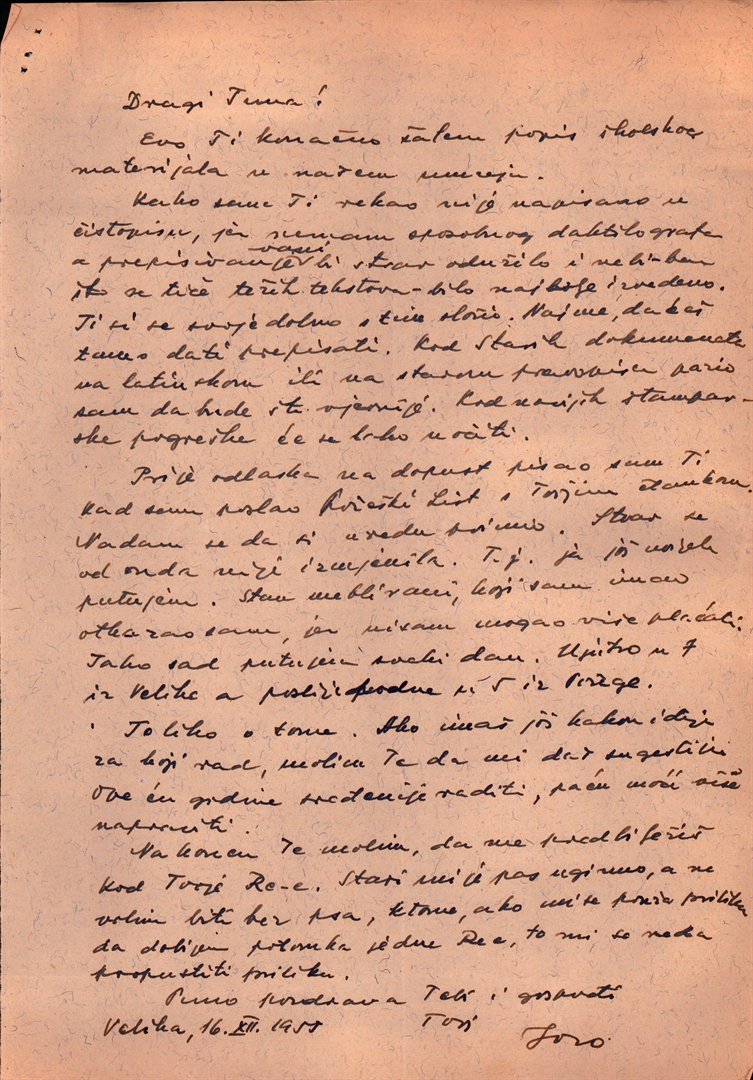 Dragi Tuna!
Evo Ti konačno šaljem popis školskog
materijala u našem muzeju.
Kako sam Ti rekao nije napisano u
čistopisu, jer nemam sposobnog daktilografa
a prepisivanje bi stvar odužilo i ne bi-bem
što se tiče težih tekstova-bilo najbolje izvedeno.
Ti si se svojedobno s tim složio. Naime, da ćeš
tamo dati prepisati. Kod starih dokumenata
na latinskom ili na starom pravopisu pazio
sam da bude što vjernije. Kod novijih štampar-
ske pogreške će se lako uočiti.
Prije odlaska na dopust pisao sam Ti
kad sam poslao Požeški List s Tvojim člankom.
Nadam se da si uredu primio. Stvar se
od onda nije izmjenila. T.j. ja još uvijek
putujem. Stan meblirani, koji sam imao
otkazao sam, jer nisam mogao više plaćati.
Tako sad putujem svaki dan. Ujutro u 7
iz Velike a poslije podne u 5 iz Požege.
Toliko o tome. Ako imaš još kakovu ideju
za koji rad, molim Te da mi daš sugestiju
Ove ću godine sređenije raditi, pa ću moći više
napraviti.
Na koncu Te molim, da me predbilježiš
kod Tvoje Re-e. Stari mi je pas uginuo, a ne
volim biti bez psa, k tome, ako mi se pruža prilika
da dobijem potomka jedne Re-e, to mi se neda
propustiti priliku.
Puno pozdrava Tebi i gospođi
Velika, 16. XII. 1955 Tvoj
Jozo